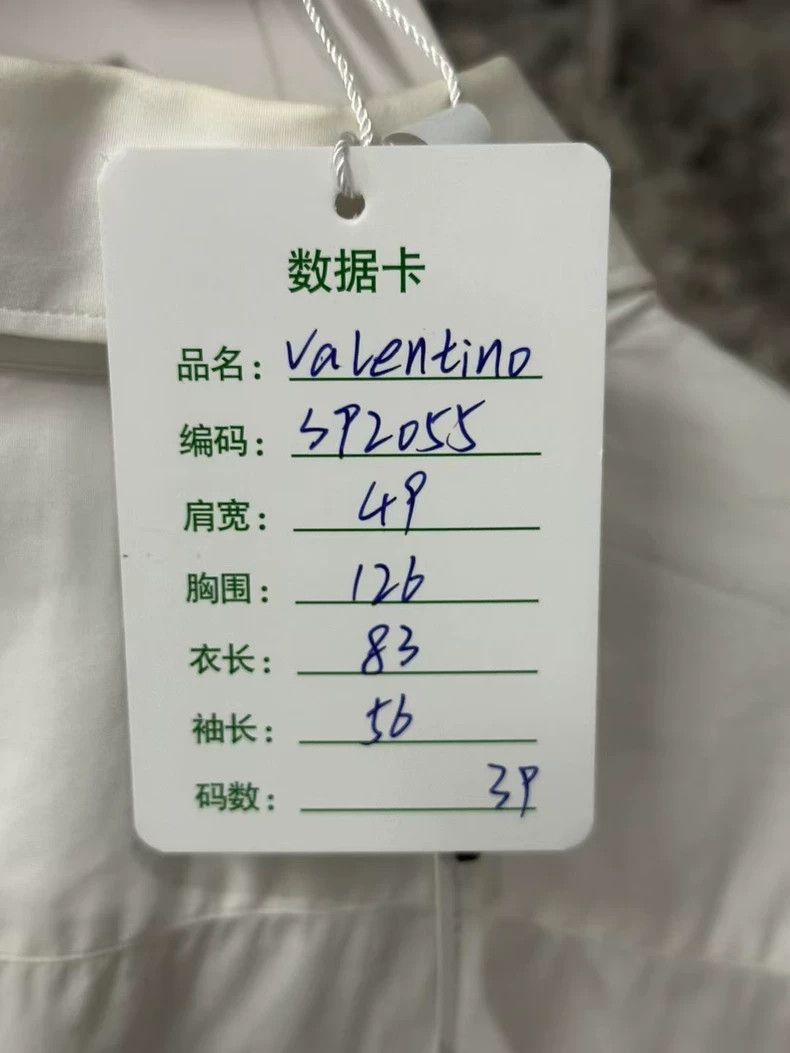 数据卡
品名: Valentino
编码: SP2055
肩宽: 49
胸围: 126
衣长: 83
袖长: 56
码数: 39